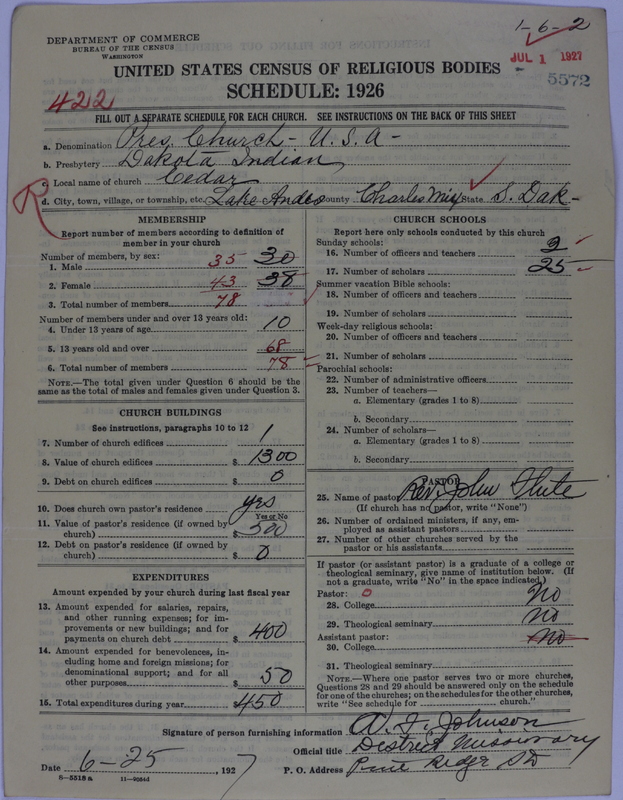 DEPARTMENT OF COMMERCE
BUREAU OF THE CENSUS
WASHINGTON
1-6-2
JUL 1 1927
5572
UNITED STATES CENSUS OF RELIGIOUS BODIES
SCHEDULE: 1926
422
FILL OUT A SEPARATE SCHEDULE FOR EACH CHURCH. SEE INSTRUCTIONS ON THE BACK OF THIS SHEET
a. Denomination Pres. Church - U. S. A -
b. Presbytery Dakota Indian
c. Local name of church Cedar
R
d. City, town, village, or township, etc. Lake Andes County Charles Mix State S. Dak -
MEMBERSHIP
Report number of members according to definition of
member in your church
Number of members, by sex:
1. Male 35 30
2. Female 43 38
3. Total number of members 78
Number of members under and over 13 years old:
4. Under 13 years of age 10
5. 13 years old and over 68
6. Total number of members 78
NOTE.—The total given under Question 6 should be the
same as the total of males and females given under Question 3.
CHURCH BUILDINGS
See instructions, paragraphs 10 to 12
7. Number of church edifices 1
8. Value of church edifices $ 1300
9. Debt on church edifices $ 0
10. Does church own pastor's residence yes
Yes or No
11. Value of pastor's residence (if owned by
church) $ 500
12. Debt on pastor's residence (if owned by
church) $ 0
EXPENDITURES
Amount expended by your church during last fiscal year
13. Amount expended for salaries, repairs,
and other running expenses; for im-
provements or new buildings; and for
payments on church debt $ 400
14. Amount expended for benevolences, in-
cluding home and foreign missions; for
denominational support; and for all
other purposes $ 50
15. Total expenditures during year $ 450
CHURCH SCHOOLS
Report here only schools conducted by this church
Sunday schools:
16. Number of officers and teachers 2
17. Number of scholars 25
Summer vacation Bible schools:
18. Number of officers and teachers
19. Number of scholars
Week-day religious schools:
20. Number of officers and teachers
21. Number of scholars
Parochial schools:
22. Number of administrative officers
23. Number of teachers—
a. Elementary (grades 1 to 8)
b. Secondary
24. Number of scholars—
a. Elementary (grades 1 to 8)
b. Secondary
PASTOR
25. Name of pastor Rev. John Flute
(If church has no pastor, write "None")
26. Number of ordained ministers, if any, em-
ployed as assistant pastors
27. Number of other churches served by the
pastor or his assistants
If pastor (or assistant pastor) is a graduate of a college or
theological seminary, give name of institution below. (If
not a graduate, write "No" in the space indicated.)
Pastor: 0
28. College No
29. Theological seminary No
Assistant pastor: No
30. College
31. Theological seminary
NOTE.—Where one pastor serves two or more churches,
Questions 28 and 29 should be answered only on the schedule
for one of the churches; on the schedules for the other churches,
write "See schedule for church."
Signature of person furnishing information A. F. Johnson
Official title District Missionary
Date 6-25 1927 P. O. Address Pine Ridge SD
8—5518 a 11—9064d